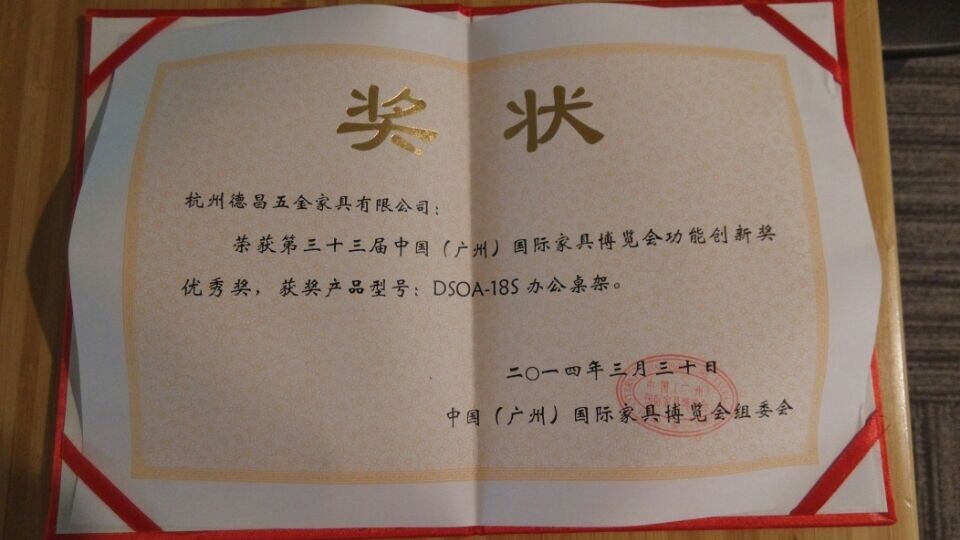 奖 状
杭州德昌五金家具有限公司：
荣获第三十三届中国（广州）国际家具博览会功能创新奖
优秀奖，获奖产品型号：DSOA-18S 办公桌架。
二〇一四年三月三十日
中国（广州）国际家具博览会组委会
中国（广州）